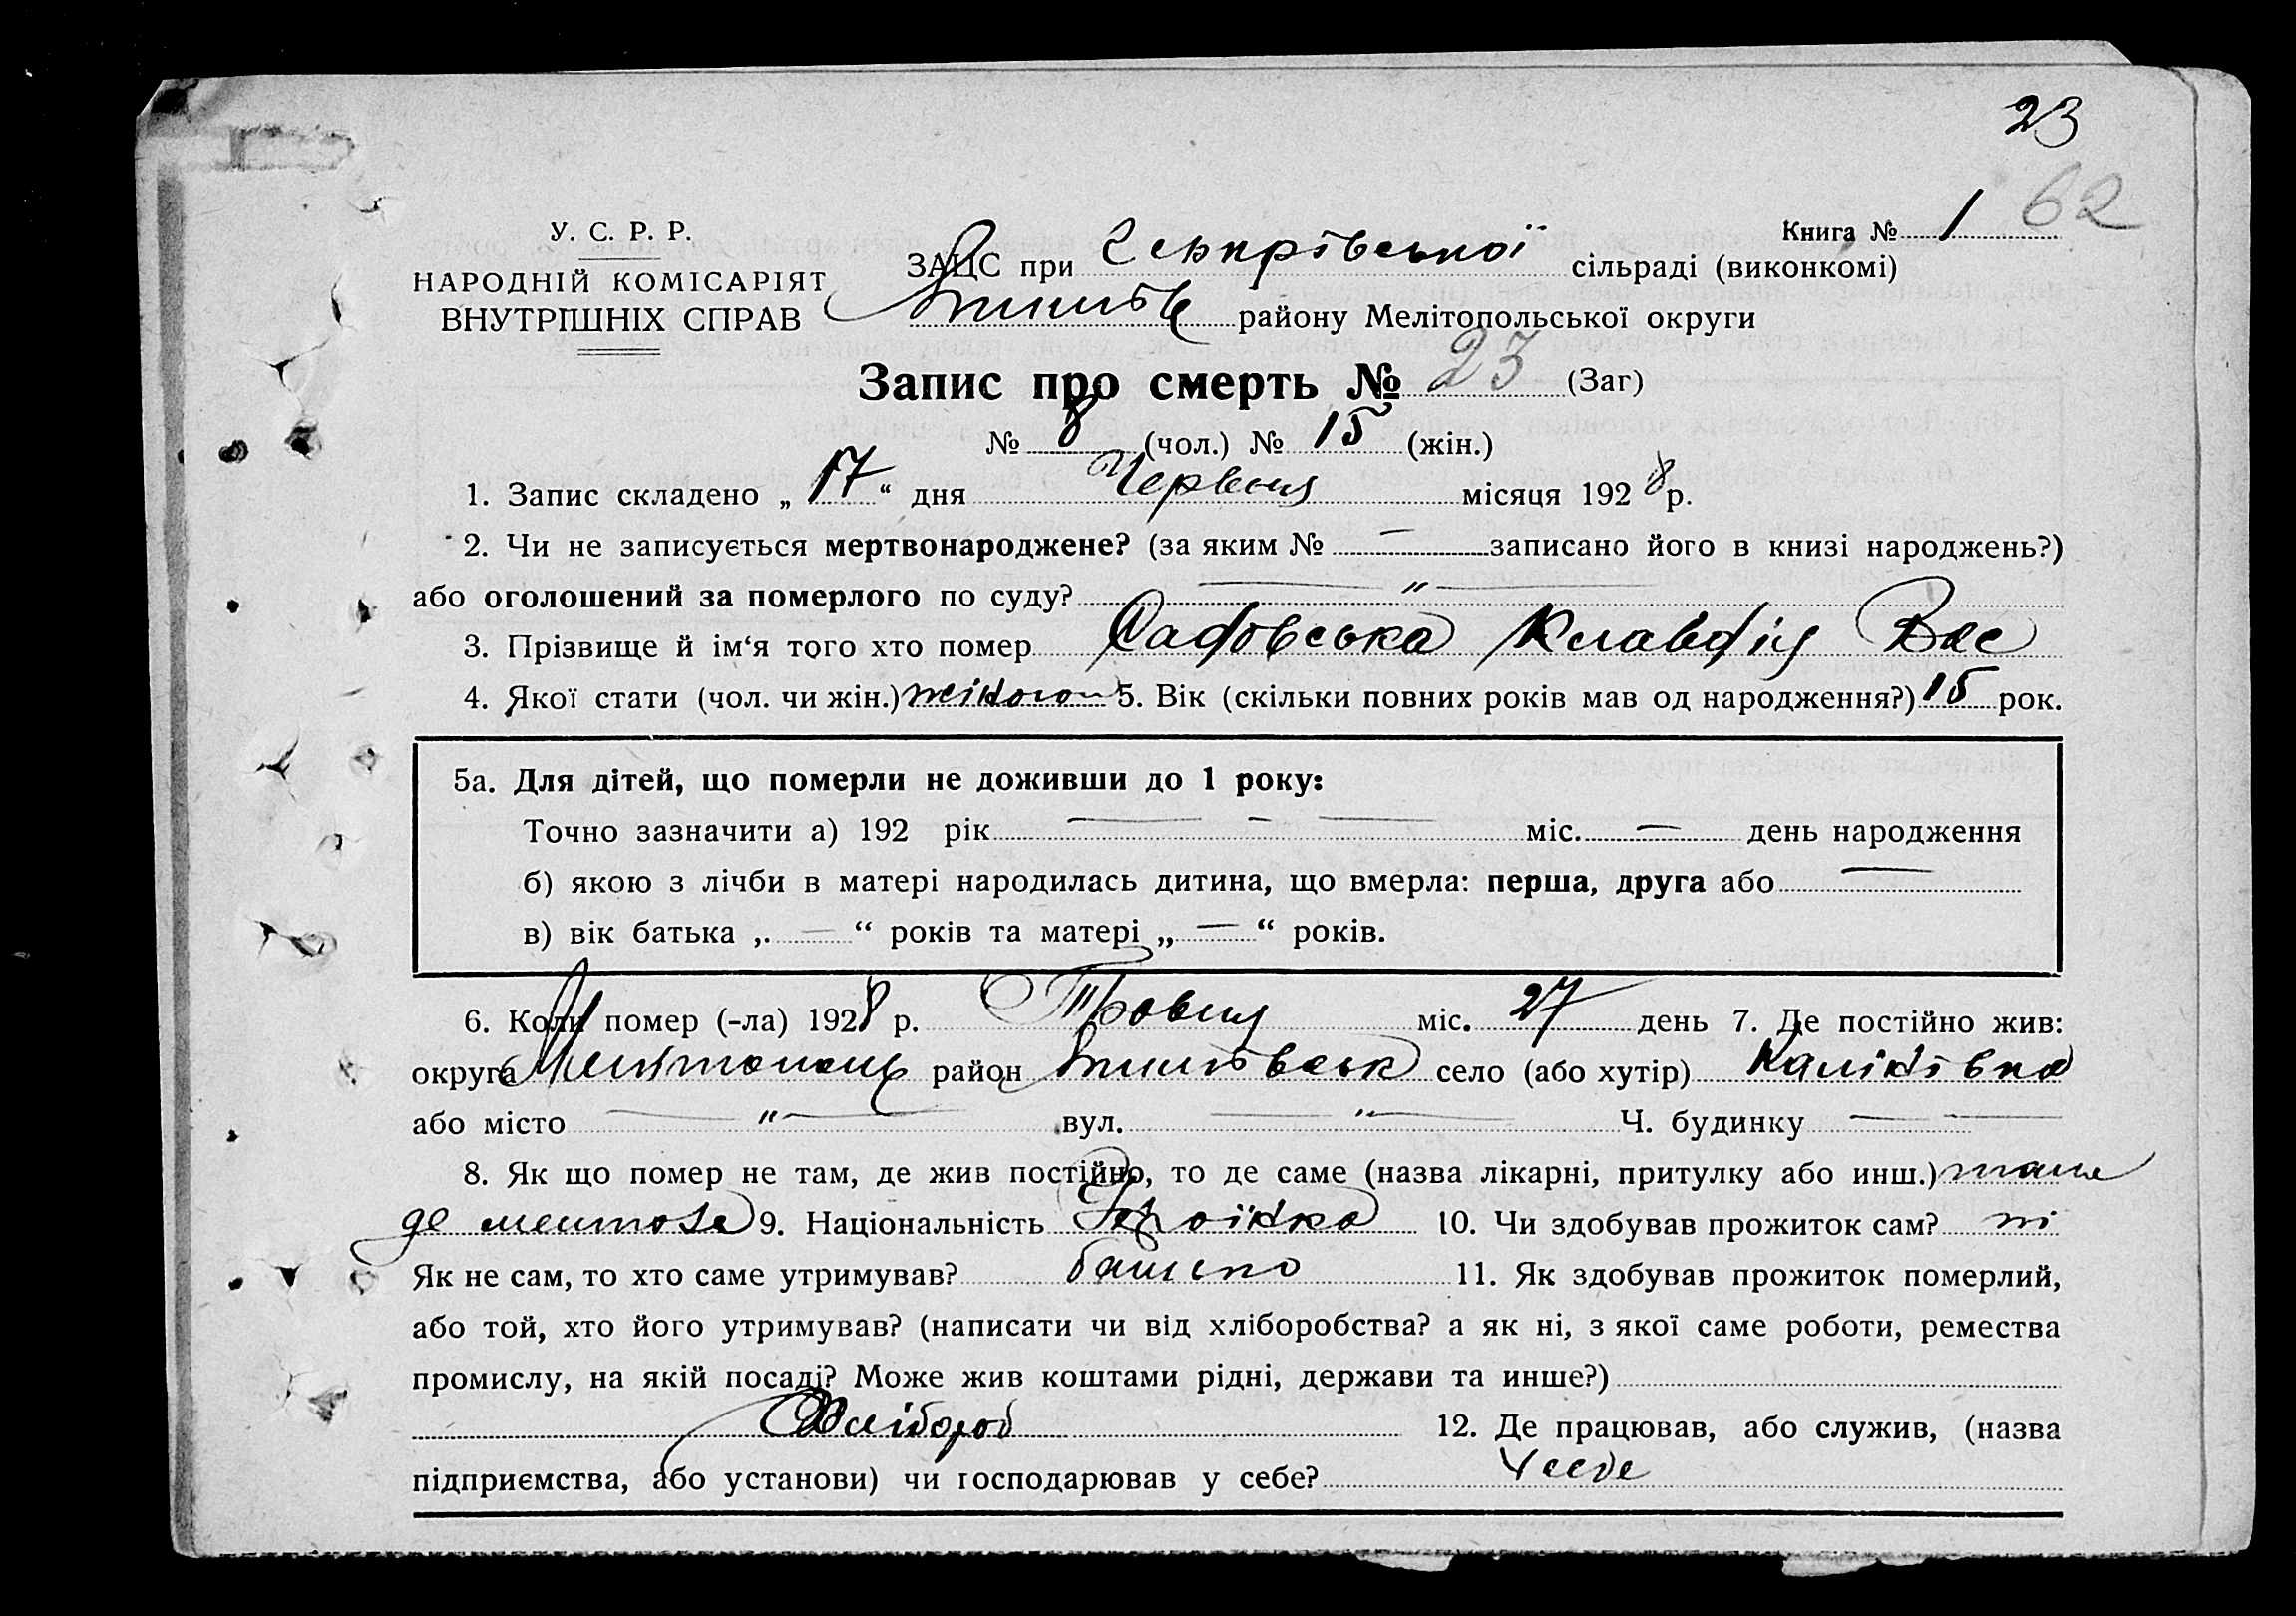 23
62
У. С. Р. Р.
НАРОДНІЙ КОМІСАРІЯТ
ВНУТРІШНІХ СПРАВ
Книга № 1
ЗАЦС при сільраді (виконкомі)
району Мелітопольської округи
Запис про смерть № 23 (Заг)
№ 8 (чол.) № 15 (жін.)
1. Запис складено „ 17 “ дня Червня місяця 1928 р.
2. Чи не записується мертвонароджене? (за яким № — записано його в книзі народжень?)
або оголошений за померлого по суду? — „ —
3. Прізвище й ім‘я того хто помер Садовська Клавдія Вас
4. Якої стати (чол. чи жін.) жіногої 5. Вік (скільки повних років мав од народження?) 15 рок.
5а. Для дітей, що померли не доживши до 1 року:
Точно зазначити а) 192 рік — — — міс. — день народження
б) якою з лічби в матері народилась дитина, що вмерла: перша, друга або —
в) вік батька „ — “ років та матері „ — “ років.
6. Коли помер (-ла) 1928 р. Травня міс. 27 день 7. Де постійно жив:
округа район село (або хутір) Калінівка
або місто — „ — вул. — „ — Ч. будинку — —
8. Як що помер не там, де жив постійно, то де саме (назва лікарні, притулку або инш.)
де 9. Національність 10. Чи здобував прожиток сам? ні
Як не сам, то хто саме утримував? батько 11. Як здобував прожиток померлий,
або той, хто його утримував? (написати чи від хліборобства? а як ні, з якої саме роботи, ремества
промислу, на якій посаді? Може жив коштами рідні, держави та инше?)
Хлібороб 12. Де працював, або служив, (назва
підприємства, або установи) чи господарював у себе? У себе